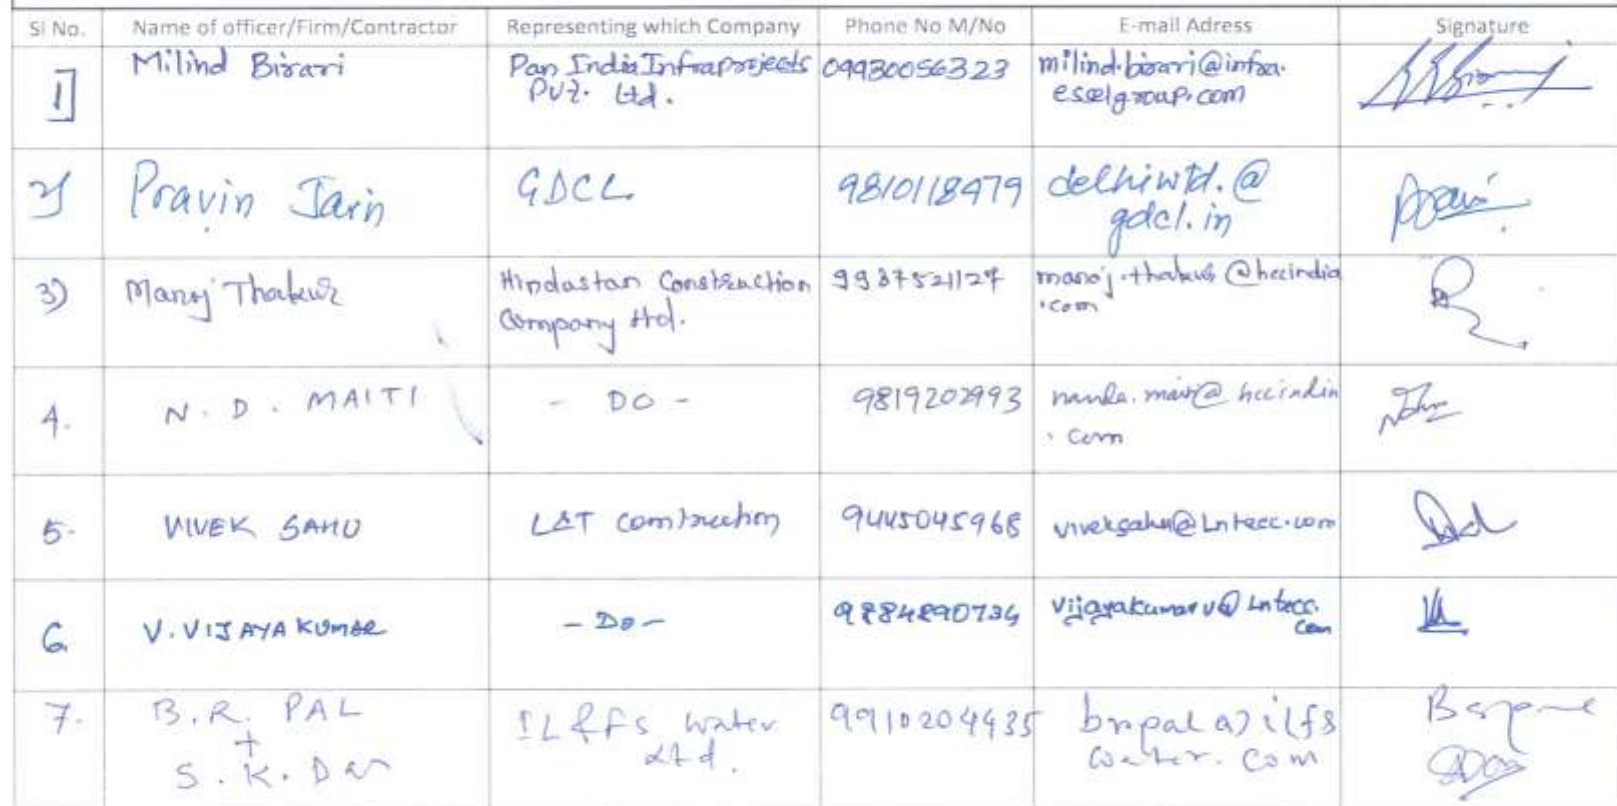 Sl No. Name of officer/Firm/Contractor Representing which Company Phone No M/No E-mail Adress Signature
1] Milind Birari Pan India Infraprojects 09930056323 milind.birari@infra.
Pvt. Ltd. esselgroup.com
2) Pravin Jain GDCL 9810118479 delhiwtd.@
gdcl.in
3) Manoj Thakur Hindustan Construction 9937521127 manoj.thakur@hccindia
Company Ltd. .com
4. N. D. MAITI - DO - 9819202993 hccindia
. com
5. VIVEK SAHU L&T construction 9445045968 viveksahu@Lntecc.com
6. V. VIJAYA KUMAR - Do - 9884890734 vijayakumarv@Lntecc.
com
7. B.R. PAL IL&FS Water 9910204435 brpal a) ilfs
+ Ltd. water.com
S. K. Das